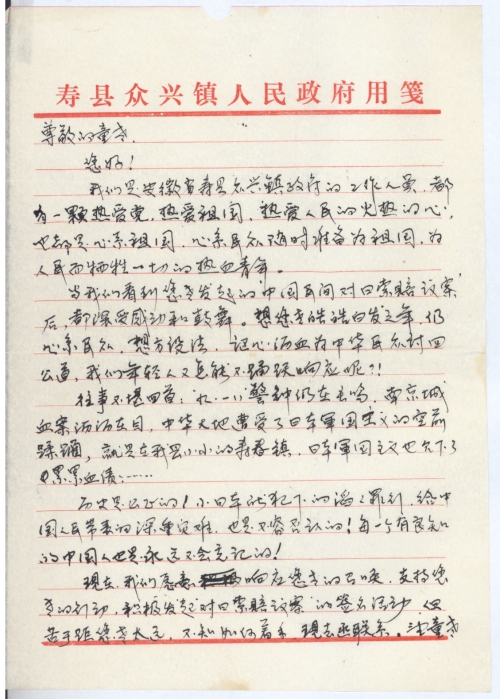 寿县众兴镇人民政府用笺
尊敬的童老,
您好!
我们是安徽省寿县众兴镇政府的工作人员,都
有一颗热爱党,热爱祖国,热爱人民的火热的心,
也都是心系祖国,心系民众随时准备为祖国,为
人民而牺牲一切的热血青年。
当我们看到您老发起的"中国民间对日索赔议案"
后,都深受感动和鼓舞。想您老皓皓白发之年,仍
心系民众,想方设法,沤心沥血为中华民众讨回
公道,我们年轻人又怎能不踊跃响应呢?!
往事不堪回首:九·一八警钟仍在长鸣,南京城
血案历历在目,中华大地遭受了日军军国主义的空前
蹂躏,就是在我县小小的寿春镇,日军军国主义也欠下了
累累血债……
历史是公正的!小日本所犯下的滔天罪行,给中
国人民带来的深重灾难,也是不容否认的!每一个有良知
的中国人也是永远不会忘记的!
现在,我们愿意响应您老的召唤,支持您
老的行动,积极发起对日索赔议案"的签名活动,但
苦于距您老太远,不知如何着手,现去函联系。让童老